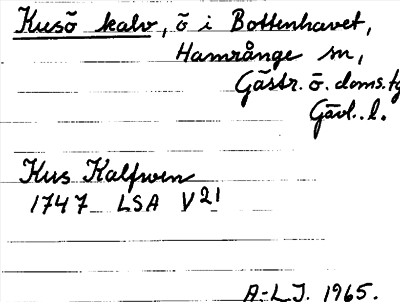 Kusö kalv, ö i Bottenhavet,
Hamrånge sn,
Gästr. ö. doms.tg
Gävl. l.
Kus Kalfwen
1747 LSA V21
A.-L.J. 1965.